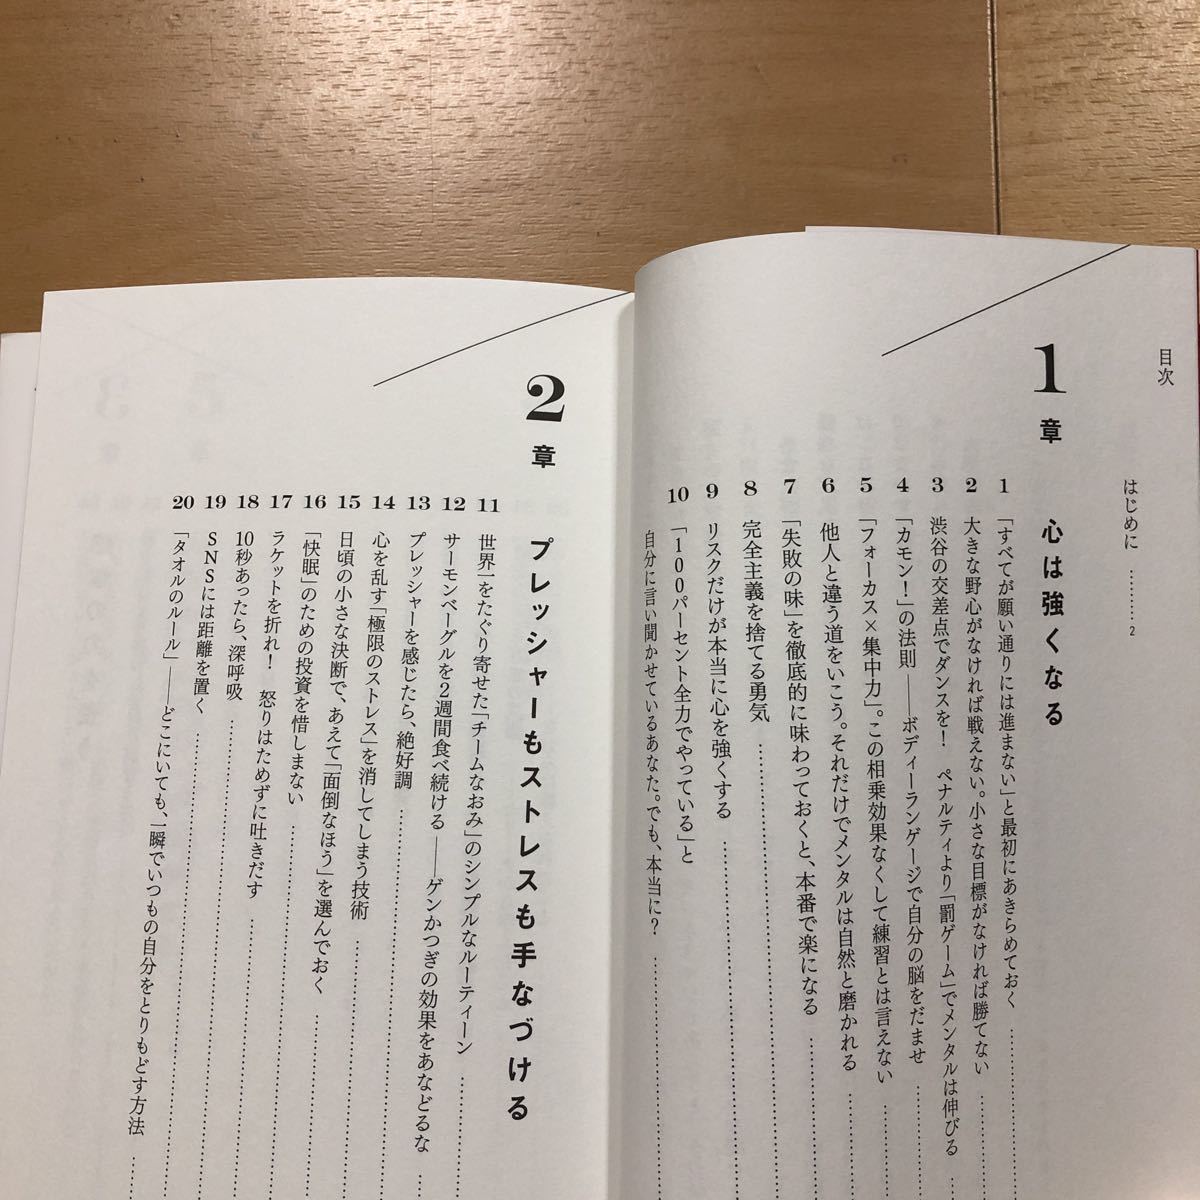 目次
はじめに ………2
1章 心は強くなる
1 「すべてが願い通りには進まない」と最初にあきらめておく
2 大きな野心がなければ戦えない。小さな目標がなければ勝てない
3 渋谷の交差点でダンスを! ペナルティより「罰ゲーム」でメンタルは伸びる
4 「カモン!」の法則――ボディーランゲージで自分の脳をだませ
5 「フォーカス×集中力」。この相乗効果なくして練習とは言えない
6 他人と違う道をいこう。それだけでメンタルは自然と磨かれる
7 「失敗の味」を徹底的に味わっておくと、本番で楽になる
8 完全主義を捨てる勇気
9 リスクだけが本当に心を強くする
10 「100パーセント全力でやっている」と
自分に言い聞かせているあなた。でも、本当に?
2章 プレッシャーもストレスも手なづける
11 世界一をたぐり寄せた「チームなおみ」のシンプルなルーティーン
12 サーモンベーグルを2週間食べ続ける――ゲンかつぎの効果をあなどるな
13 プレッシャーを感じたら、絶好調
14 心を乱す「極限のストレス」を消してしまう技術
15 日頃の小さな決断で、あえて「面倒なほう」を選んでおく
16 「快眠」のための投資を惜しまない
17 ラケットを折れ! 怒りはためずに吐きだす
18 10秒あったら、深呼吸
19 SNSには距離を置く
20 「タオルのルール」――どこにいても、一瞬でいつもの自分をとりもどす方法